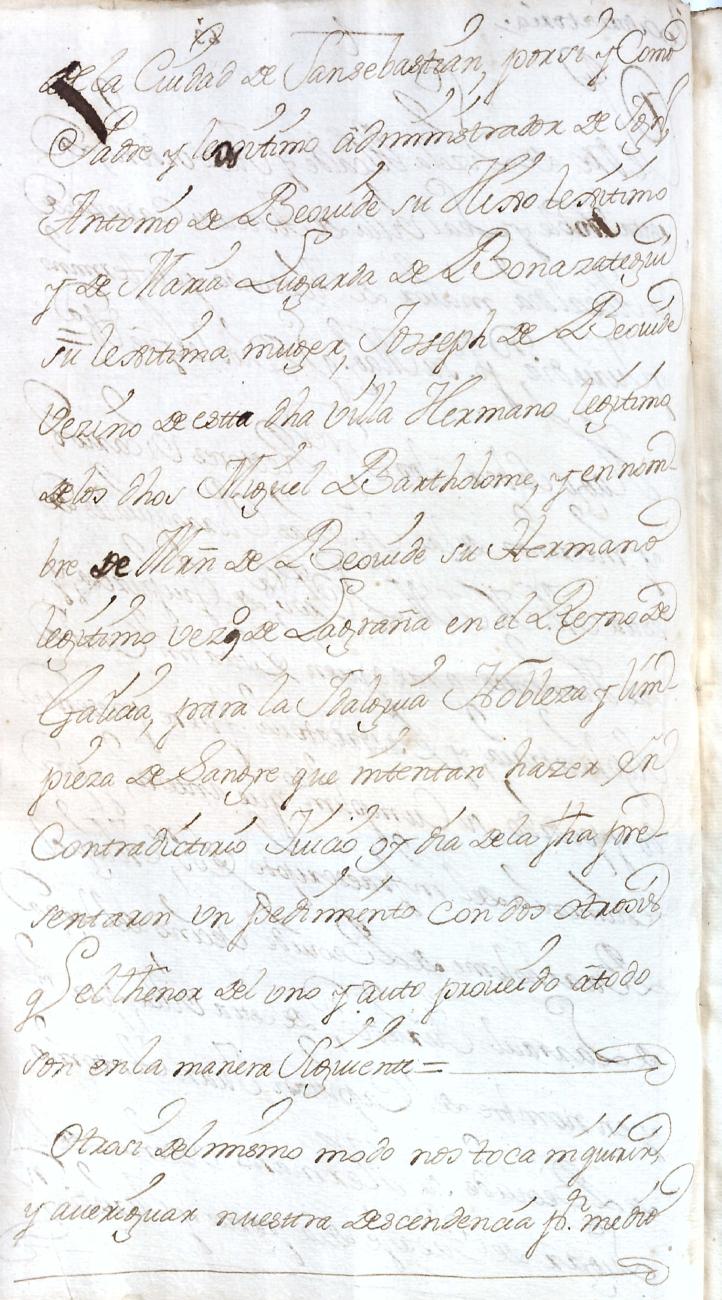 de la Ciudad de Sansebastian, por si y Como
Padre y legitimo administrador de Jph
Antonio de Beovide su Hixo lexitimo
y de Maria Lugarda de Bonazategui
su lexitima muger, Joseph de Beovide
vezino de estta dha villa Hermano legitimo
delos dhos Miguel Bartholome, y en nom-
bre de Mrñ de Beovide su Hermano
legitimo vezº de Lagraña en el Reyno de
Galicia, para la Idalguia Nobleza y lim-
pieza de Sangre que intentan hazer en
Contradictorio Juicio oy dia de la fha pre-
sentaron un pedimento con dos otrosies
q el thenor del uno y auto proveido a todo
son en la manera Siguiente =
Otrosi del mismo modo nos toca inquirir,
y averiguar nuestra descendencia pr. medio